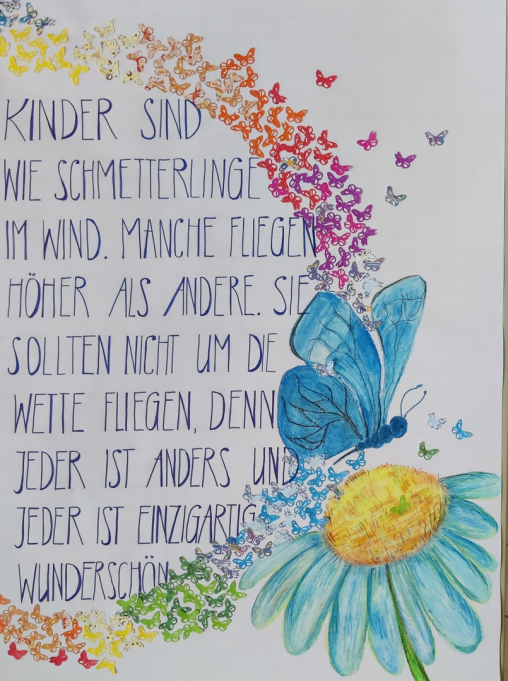 KINDER SIND
WIE SCHMETTERLINGE
IM WIND. MANCHE FLIEGEN
HÖHER ALS ANDERE. SIE
SOLLTEN NICHT UM DIE
WETTE FLIEGEN, DENN
JEDER IST ANDERS UND
JEDER IST EINZIGARTIG
WUNDERSCHÖN